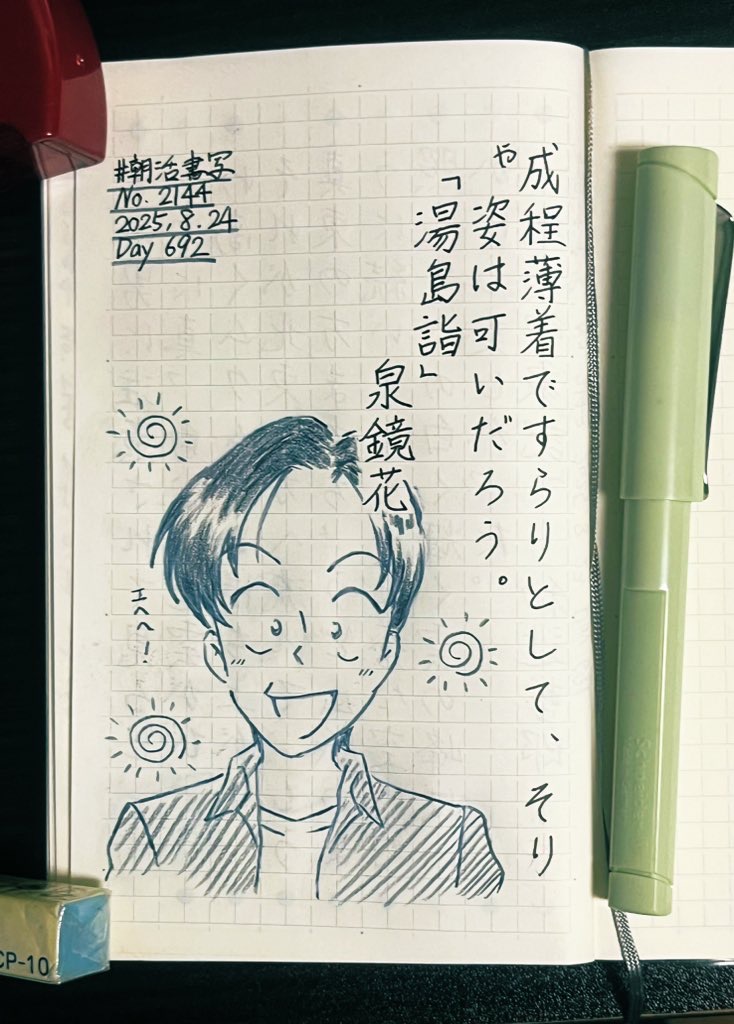 成程薄着ですらりとして、そり
や姿は可いだろう。
「湯島詣」
泉鏡花
#朝活書写
No. 2144
2025, 8. 24
Day 692
エヘヘ!
CP-10